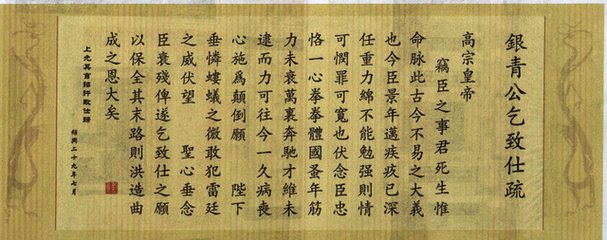 銀青公乞致仕疏
高宗皇帝
竊臣之事君死生惟
命脈此古今不易之大義
也今臣景年邁疾疚已深
任重力綿不能勉强則情
可憫罪可寬也伏念臣忠
恪一心拳拳體國蚤年筋
力未衰萬裏奔馳才維未
逮而力可往今一久病喪
心施爲顛倒願 陛下
垂憐螻蟻之微敢犯雷霆
之威伏望 聖心垂念
臣衰殘俾遂乞致仕之願
以保全其末路則洪造曲
成之恩大矣
上允其言詔許致仕歸
紹興二十九年七月